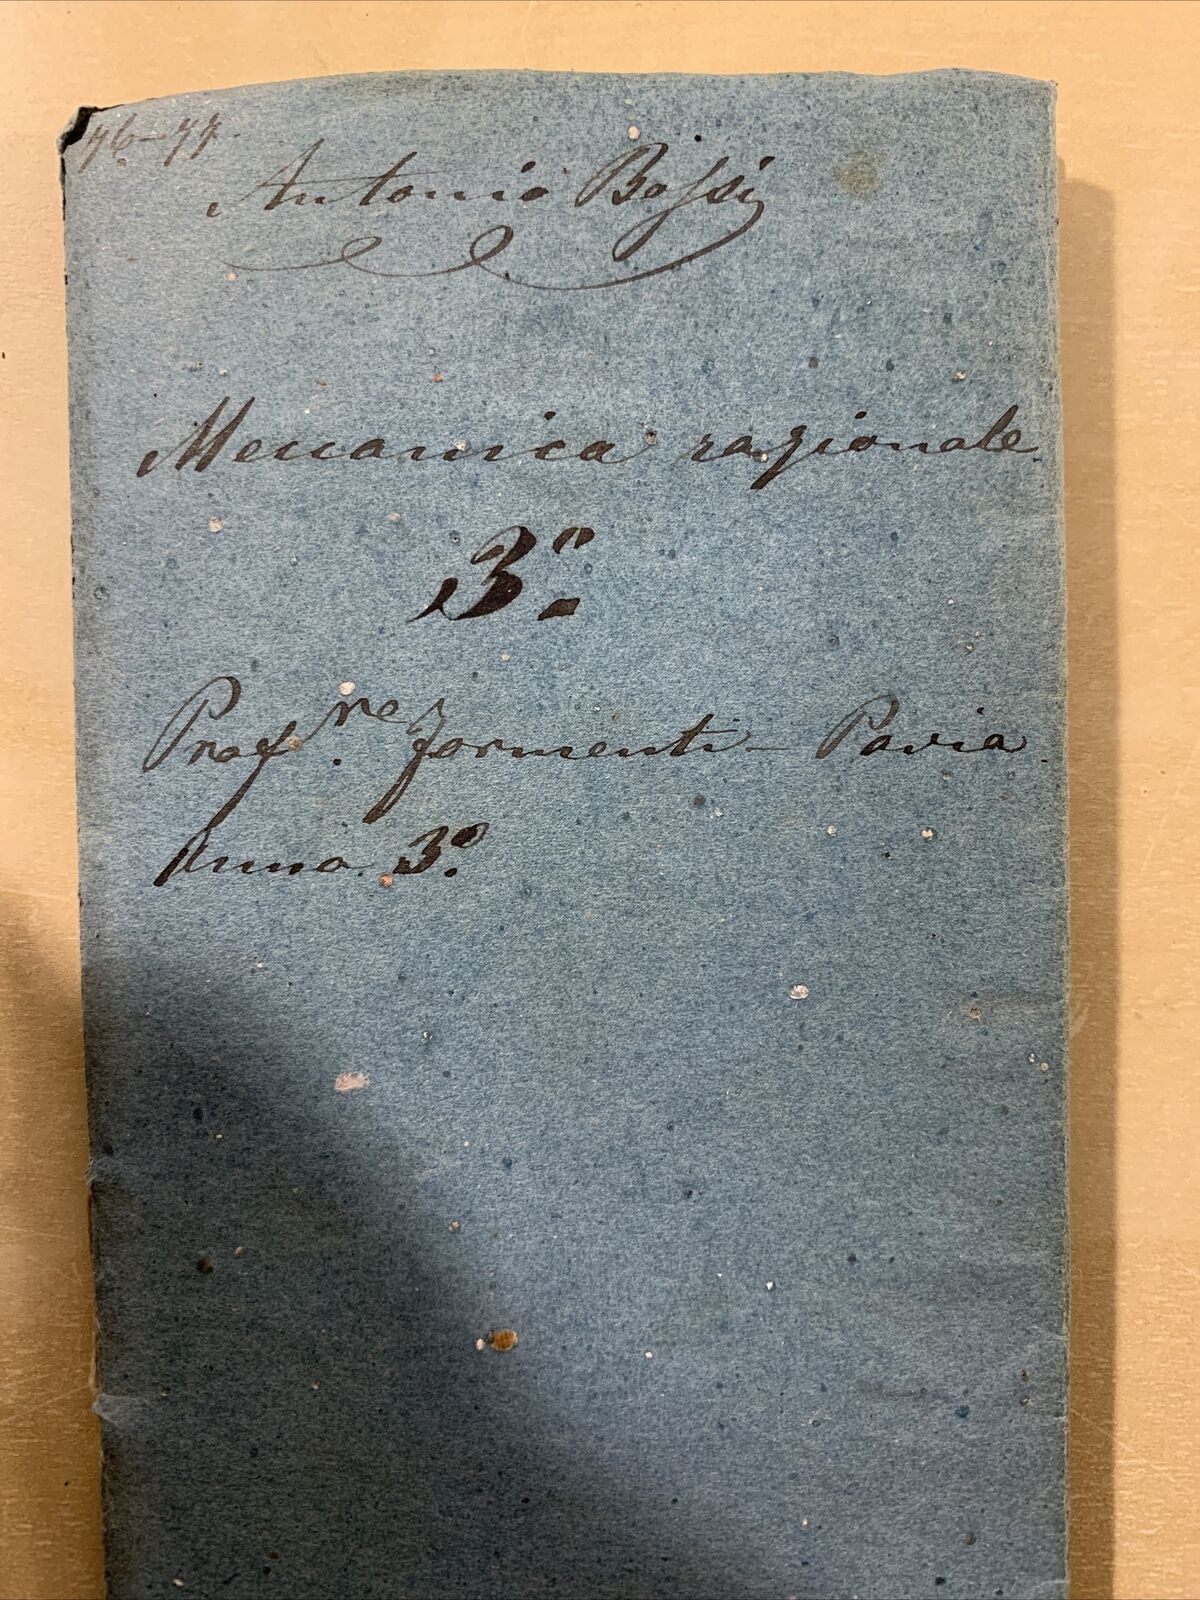 76-77.
Antonio Bossi
Meccanica razionale
3°
Prof.re Formenti - Pavia
Anno 3°